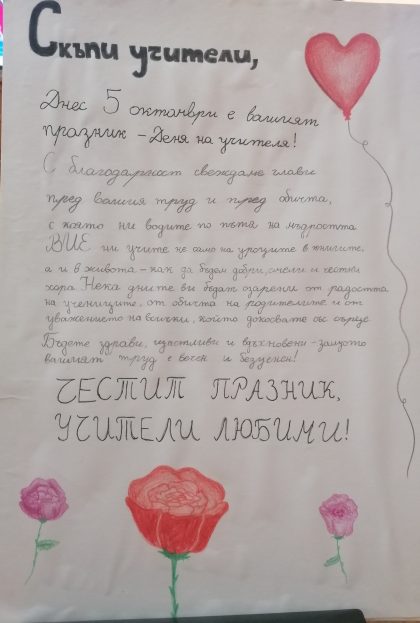 Скъпи учители,
Днес 5 октомври е вашият
празник - Деня на учителя!
С благодарност свеждаме глави
пред вашия труд и пред обичта,
с която ни водите по пътя на мъдростта.
ВИЕ ни учите не само на уроците в книгите,
а и в живота - как да бъдем добри, смели и честни
хора. Нека дните ви бъдат озарени от радостта
на учениците, от обичта на родителите и от
уважението на всички, които докосвате със сърце.
Бъдете здрави, щастливи и вдъхновени - защото
вашият труд е вечен и безценен!
ЧЕСТИТ ПРАЗНИК,
УЧИТЕЛИ ЛЮБИМИ!